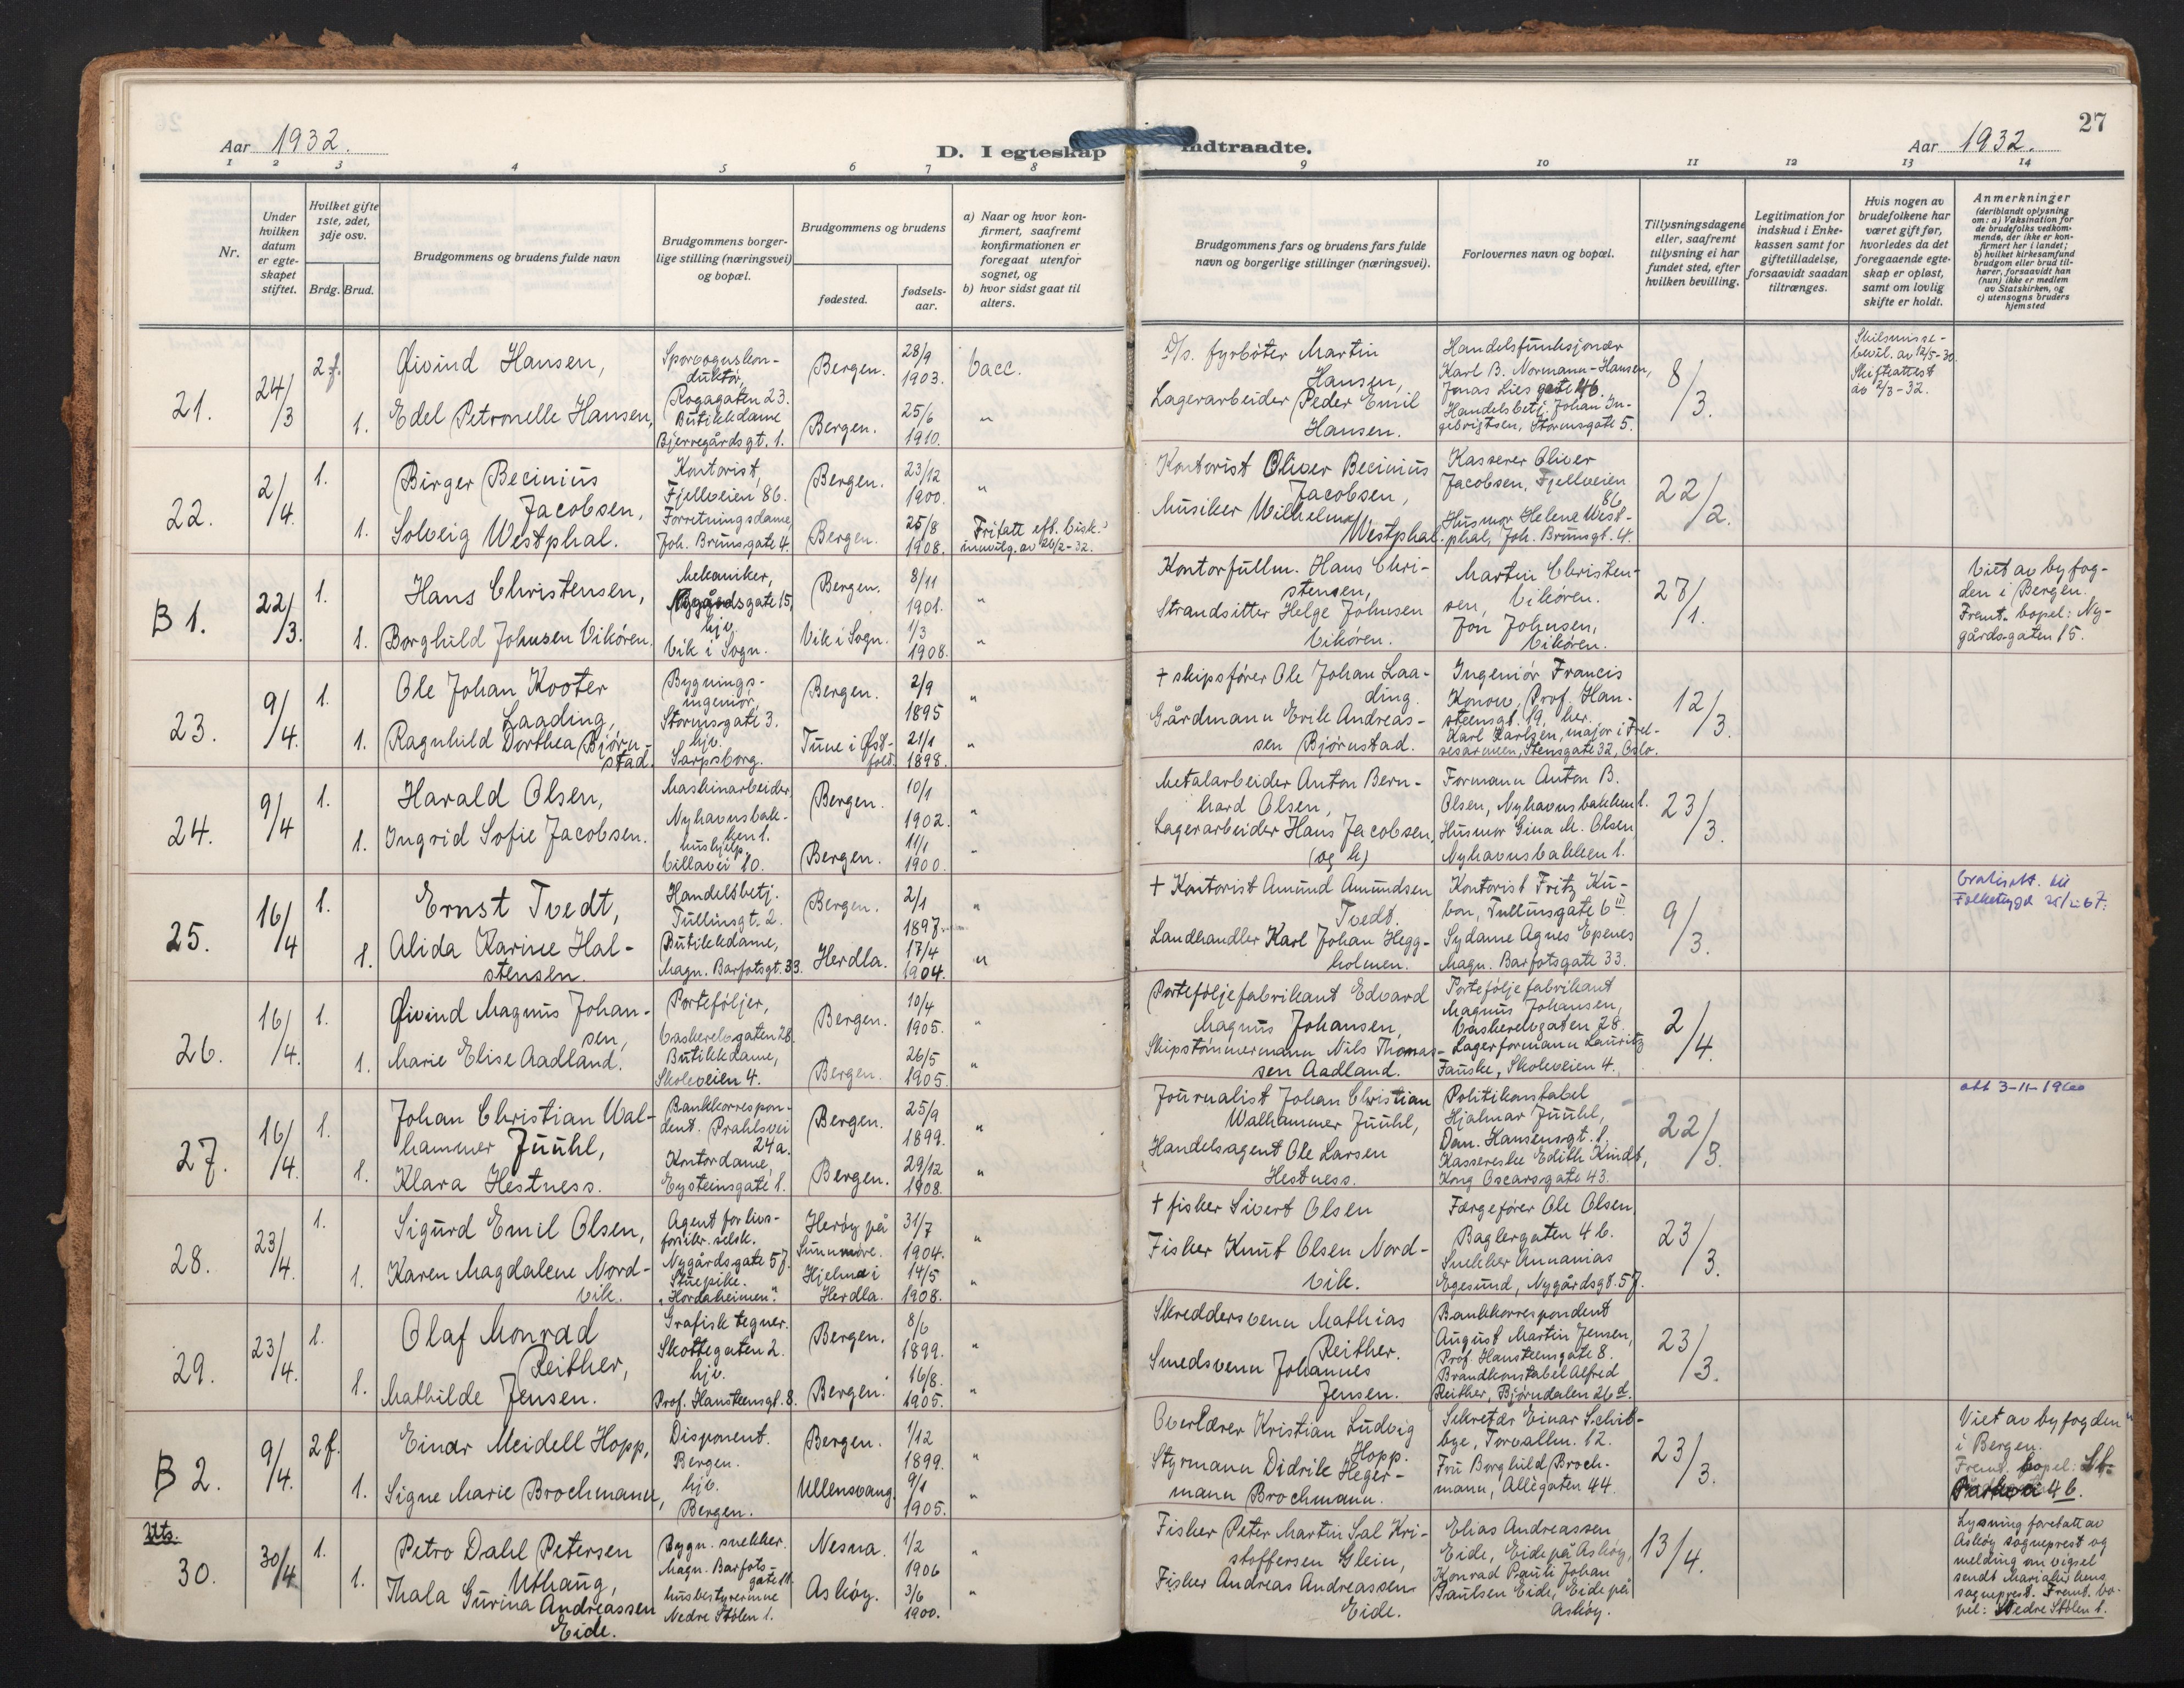 Aar 1932.
D. I egteskap indtraadte.
Aar 1932.
27
1 2 3 4 5 6 7 8 9 10 11 12 13 14
Nr.
Under hvilken datum er egteskapet stiftet.
Hvilket gifte 1ste, 2det, 3dje osv.
Brdg. Brud.
Brudgommens og brudens fulde navn
Brudgommens borgerlige stilling (næringsvei) og bopæl.
Brudgommens og brudens
fødested.
fødselsaar.
a) Naar og hvor konfirmert, saafremt konfirmationen er foregaat utenfor sognet, og
b) hvor sidst gaat til alters.
Brudgommens fars og brudens fars fulde navn og borgerlige stillinger (næringsvei).
Forlovernes navn og bopæl.
Tillysningsdagene eller, saafremt tillysning ei har fundet sted, efter hvilken bevilling.
Legitimation for indskud i Enkekassen samt for giftetilladelse, forsaavidt saadan tiltrænges.
Hvis nogen av brudefolkene har været gift før, hvorledes da det foregaaende egteskap er opløst, samt om lovlig skifte er holdt.
Anmerkninger (deriblandt oplysning om: a) Vaksination for de brudefolks vedkommende, der ikke er konfirmert her i landet; b) hvilket kirkesamfund brudgom eller brud tilhører, forsaavidt han (hun) ikke er medlem av Statskirken, og c) utensogns bruders hjemsted
21. 24/3 2 f. Øivind Hansen, Sporvognskonduktør, Rogagaten 23. Bergen. 28/9 1903. vacc.
1. Edel Petronelle Hansen, Butikkdame Bjerregårdsgt. 1. Bergen. 25/6 1910. "
D/s. fyrbøter Martin Hansen,
Lagerarbeider Peder Emil Hansen.
Handelsfunksjonær Karl B. Normann-Hansen, Jonas Lies gate 46.
Handelsbetj. Johan Ingebrigtsen, Stormsgate 5.
8/3.
Skilsmissebevil. av 12/5-30. Skifteattest av 2/3-32.
22. 2/4. 1. Birger Becinius Jacobsen, Kontorist, Fjellveien 86. Bergen. 23/12 1900. "
1. Solveig Westphal. Forretningsdame, Joh. Brunsgate 4. Bergen. 25/8 1908. Fritatt eft. bisk. innvilg. av 26/2-32.
Kontorist Oliver Becinius Jacobsen,
Musiker Wilhelm Westphal.
Kasserer Oliver Jacobsen, Fjellveien 86
Husmor Helene Westphal, Joh. Brunsgt. 4.
22/2.
B 1. 22/3. 1. Hans Christensen, Mekaniker, Nygårdsgate 15, Bergen. 8/11 1901. "
1. Borghild Johnsen Vikøren. hjv. Vik i Sogn. Vik i Sogn. 1/3 1908. "
Kontorfullm. Hans Christensen,
Strandsitter Helge Johnsen Vikøren.
Martin Christensen, Vikøren.
Jon Johnsen, Vikøren.
27/1.
Viet av byfogden i Bergen. Fremt. bopel: Nygårdsgaten 15.
23. 9/4. 1. Ole Johan Kooter Laading, Bygningsingeniør, Stormsgate 3. Bergen. 2/9 1895 "
1. Ragnhild Dorthea Bjørnstad. hjv. Sarpsborg. Tune i Østfold. 21/1 1898. "
+ skipsfører Ole Johan Laading.
Gårdmann Erik Andreassen Bjørnstad.
Ingeniør Francis Konow, Prof. Hansteensgt. 19, her.
Karl Karlsen, major i Frelsesarmeen, Stensgate 32, Oslo.
12/3.
24. 9/4 1. Harald Olsen, Maskinarbeider, Nyhavnsbakken 1. Bergen. 10/1 1902. "
1. Ingrid Sofie Jacobsen. hushjelp. Villavei 10. Bergen. 11/1 1900. "
Metalarbeider Anton Bernhard Olsen,
Lagerarbeider Hans Jacobsen. (og h)
Formann Anton B. Olsen, Nyhavnsbakken 1.
Husmor Gina M. Olsen Nyhavnsbakken 1.
23/3.
25. 16/4 1. Ernst Tvedt, Handelsbetj. Tullinsgt. 2. Bergen. 2/1 1897. "
1. Alida Karine Halstensen. Butikkdame, Magn. Barfotsgt. 33. Herdla. 17/4 1904. "
+ Kontorist Amund Amundsen Tvedt.
Landhandler Karl Johan Heggholmen.
Kontorist Fritz Kubon, Tullinsgate 6 III
Sydame Agnes Epenes Magn. Barfotsgate 33.
9/3.
26. 16/4. 1. Øivind Magnus Johansen, Porteføljer, Vaskerelvgaten 28. Bergen. 10/4 1905. "
1. Marie Elise Aadland. Butikkdame, Skoleveien 4. Bergen. 26/5 1905. "
Porteføljefabrikant Edvard Magnus Johansen,
Skipstømmermann Nils Thomassen Aadland.
Porteføljefabrikant Magnus Johansen, Vaskerelvgaten 28.
Lagerformann Lauritz Fauske, Skoleveien 4.
2/4.
27. 16/4. 1. Johan Christian Walhammer Juuhl, Bankkorrespondent. Prahlsvei 24a. Bergen. 25/9 1899. "
1. Klara Hestness. Kontordame, Eysteinsgate 1. Bergen. 29/12 1908. "
Journalist Johan Christian Walhammer Juuhl,
Handelsagent Ole Larsen Hestness.
Politikonstabel Hjalmar Juuhl, Dan. Hansensgt. 1.
Kassererske Edith Kindt, Kong Oscarsgate 43.
22/3.
att 3-11-1960
28. 23/4. 1. Sigurd Emil Olsen, Agent for livsforsikr. selsk. Nygårdsgate 57. Herøy på Sunnmøre. 31/7 1904. "
1. Karen Magdalene Nordvik. Stuepike. "Hordaheimen". Hjelme i Herdla. 14/5 1908. "
+ fisker Sivert Olsen
Fisker Knut Olsen Nordvik.
Færgefører Ole Olsen, Baglergaten 4 b.
Snekker Annanias Egesund, Nygårdsgt. 57.
23/3.
29. 23/4. 1. Olaf Monrad Reither, Grafisk tegner. Skottegaten 2. Bergen. 8/6 1899. "
1. Mathilde Jensen. hjv. Prof. Hansteensgt. 8. Bergen. 16/8. 1905. "
Skreddersvenn Mathias Reither.
Smedsvenn Johannes Jensen.
Bankkorrespondent August Martin Jensen, Prof. Hansteensgate 8.
Brandkonstabel Alfred Reither, Bjørndalen 26 d.
23/3.
B 2. 9/4. 2 f. Einar Meidell Hopp, Disponent. Bergen. Bergen. 1/12 1899. "
1. Signe Marie Brochmann, hjv. Bergen. Ullensvang. 9/1 1905. "
Overlærer Kristian Ludvig Hopp.
Styrmann Didrik Hegermann Brochmann.
Sekretær Einar Schibbye, Torvallm. 12.
Fru Borghild Brochmann, Allégaten 44.
23/3.
Viet av byfogden i Bergen. Fremt. bopel:
Uts.
30. 30/4 1. Petro Dahl Petersen Uthaug, Bygn. snekker. Magn. Barfotsgate 11. Nesna. 1/2 1906 "
1. Thala Gurina Andreassen Eide. husbestyrerinne Nedre Stølen 1. Askøy. 3/6 1900. "
Fisker Peter Martin Sal Kristoffersen Glein,
Fisker Andreas Andreassen Eide.
Elias Andreassen Eide, Eide på Askøy,
Konrad Pauli Johan Paulsen Eide, Eide på Askøy.
13/4.
Lysning foretatt av Askøy sogneprest og melding om vigsel sendt Mariakirkens sogneprest. Fremt. bopel: Nedre Stølen 1.